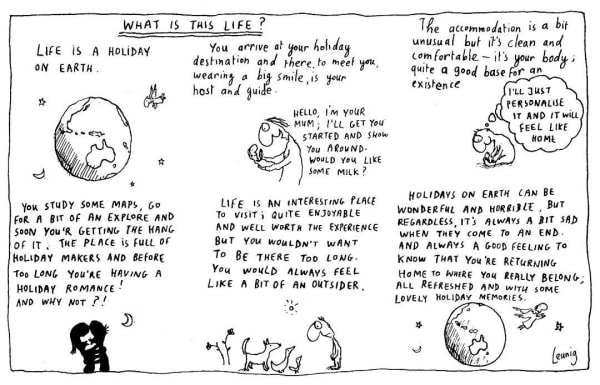 WHAT IS THIS LIFE?
LIFE IS A HOLIDAY
ON EARTH.
You arrive at your holiday
destination and there, to meet you,
wearing a big smile, is your
host and guide.
HELLO, I'M YOUR
MUM; I'LL GET YOU
STARTED AND SHOW
YOU AROUND.
WOULD YOU LIKE
SOME MILK?
The accommodation is a bit
unusual but it's clean and
comfortable - it's your body;
quite a good base for an
existence
I'LL JUST
PERSONALISE
IT AND IT WILL
FEEL LIKE
HOME
YOU STUDY SOME MAPS, GO
FOR A BIT OF AN EXPLORE AND
SOON YOU'R GETTING THE HANG
OF IT. THE PLACE IS FULL OF
HOLIDAY MAKERS AND BEFORE
TOO LONG YOU'RE HAVING A
HOLIDAY ROMANCE!
AND WHY NOT?!
LIFE IS AN INTERESTING PLACE
TO VISIT; QUITE ENJOYABLE
AND WELL WORTH THE EXPERIENCE
BUT YOU WOULDN'T WANT
TO BE THERE TOO LONG.
YOU WOULD ALWAYS FEEL
LIKE A BIT OF AN OUTSIDER.
HOLIDAYS ON EARTH CAN BE
WONDERFUL AND HORRIBLE, BUT
REGARDLESS, IT'S ALWAYS A BIT SAD
WHEN THEY COME TO AN END.
AND ALWAYS A GOOD FEELING TO
KNOW THAT YOU'RE RETURNING
HOME TO WHERE YOU REALLY BELONG;
ALL REFRESHED AND WITH SOME
LOVELY HOLIDAY MEMORIES.
Leunig